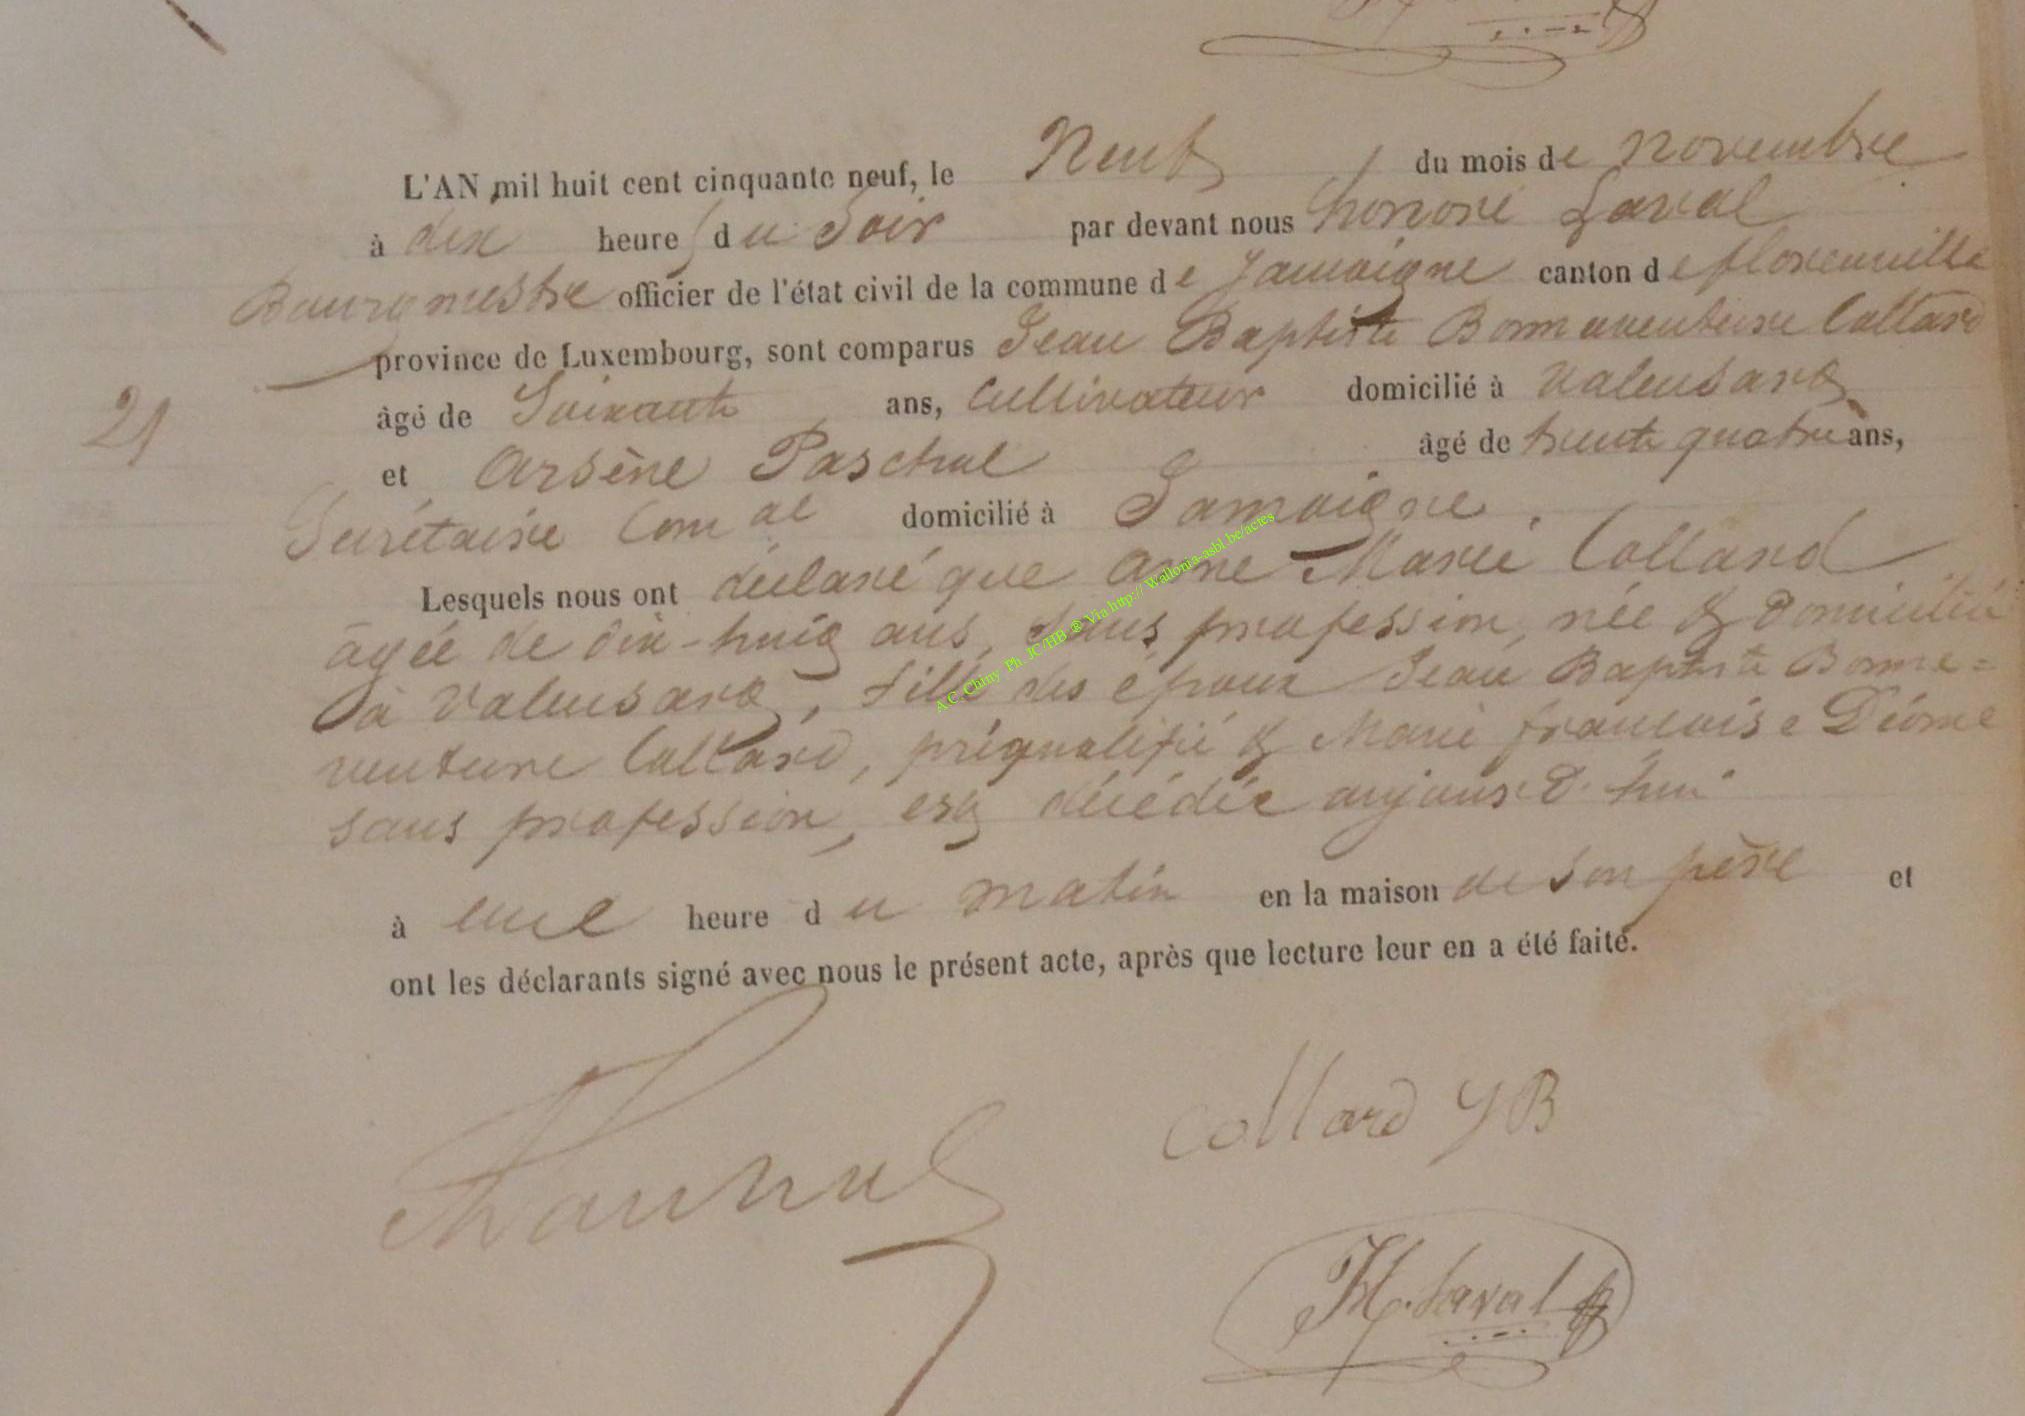 L'AN mil huit cent cinquante neuf, le Neuf du mois de novembre
à dix heures du Soir par devant nous honoré Laval
Bourgmestre officier de l'état civil de la commune de Jamoigne canton de florenville
province de Luxembourg, sont comparus Jean Baptiste Bonnaventure Collard
21
âgé de Soixante ans, Cultivateur domicilié à Valensart
et Arsène Paschal âgé de trente quatre ans,
Secrétaire Comal domicilié à Jamoigne.
Lesquels nous ont déclaré que Anne Marie Collard
agée de dix-huit ans, sans profession, née & Domiciliée
à Valensart, fille des époux Jean Baptiste Bonne=
venture Collard, préqualifié & Marie françoise Diome
sans profession, est décédée aujourd'hui
à une heure du matin en la maison de son père et
ont les déclarants signé avec nous le présent acte, après que lecture leur en a été faite.
Collard JB
H. Laval
A.C. Chiny Ph. JC/HB ® Via http:// Wallonia-asbl.be/actes